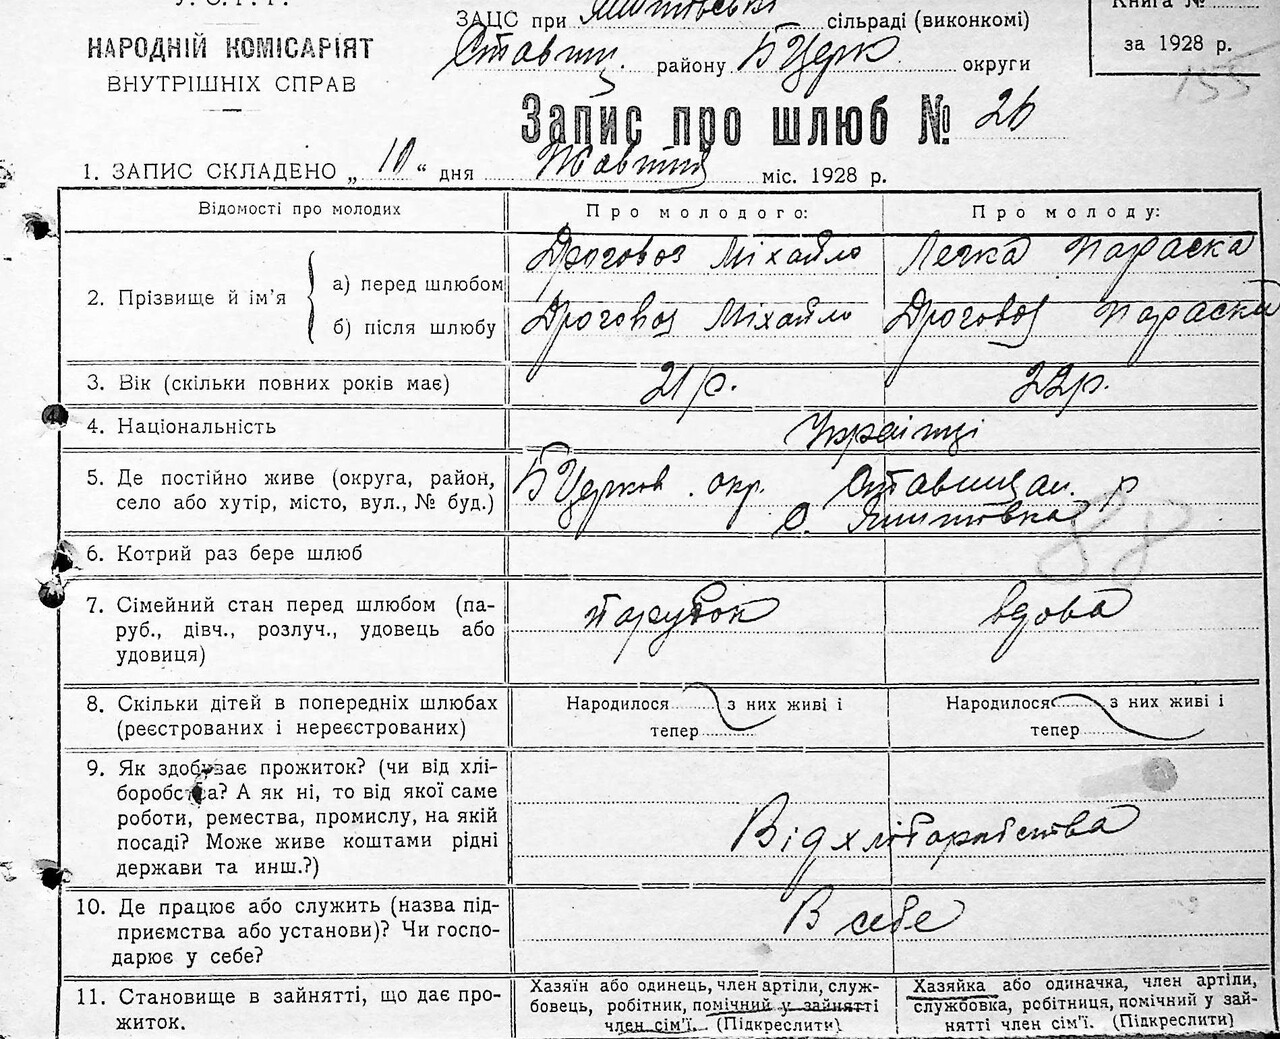 У.С.Р.Р.
НАРОДНІЙ КОМІСАРІЯТ
ВНУТРІШНІХ СПРАВ
ЗАЦС при сільраді (виконкомі)
Ставищ. району БЦерк округи
Книга №
за 1928 р.
155
Запис про шлюб № 26
1. ЗАПИС СКЛАДЕНО „ 10 “ дня Жовтня міс. 1928 р.
Відомості про молодих
Про молодого:
Про молоду:
2. Прізвище й ім’я
а) перед шлюбом
Дроговоз Міхайло
Легка Параска
б) після шлюбу
Дроговоз Міхайло
Дроговоз Параска
3. Вік (скільки повних років має)
21 р.
22 р.
4. Національність
Українці
5. Де постійно живе (округа, район,
село або хутір, місто, вул., № буд.)
БЦерков. окр. Ставищан. р
с.
88
6. Котрий раз бере шлюб
7. Сімейний стан перед шлюбом (па-
руб., дівч., розлуч., удовець або
удовиця)
парубок
вдова
8. Скільки дітей в попередніх шлюбах
(реєстрованих і нереєстрованих)
Народилося з них живі і
тепер
Народилося з них живі і
тепер
9. Як здобуває прожиток? (чи від хлі-
боробства? А як ні, то від якої саме
роботи, ремества, промислу, на якій
посаді? Може живе коштами рідні
держави та инш.?)
Від хліборобства
10. Де працює або служить (назва під-
приємства або установи)? Чи госпо-
дарює у себе?
В себе
11. Становище в зайнятті, що дає про-
житок.
Хазяїн або одинець, член артіли, служ-
бовець, робітник, помічний у зайнятті
член сім’ї. (Підкреслити)
Хазяйка або одиначка, член артіли,
службовка, робітниця, помічний у зай-
нятті член сім’ї. (Підкреслити)